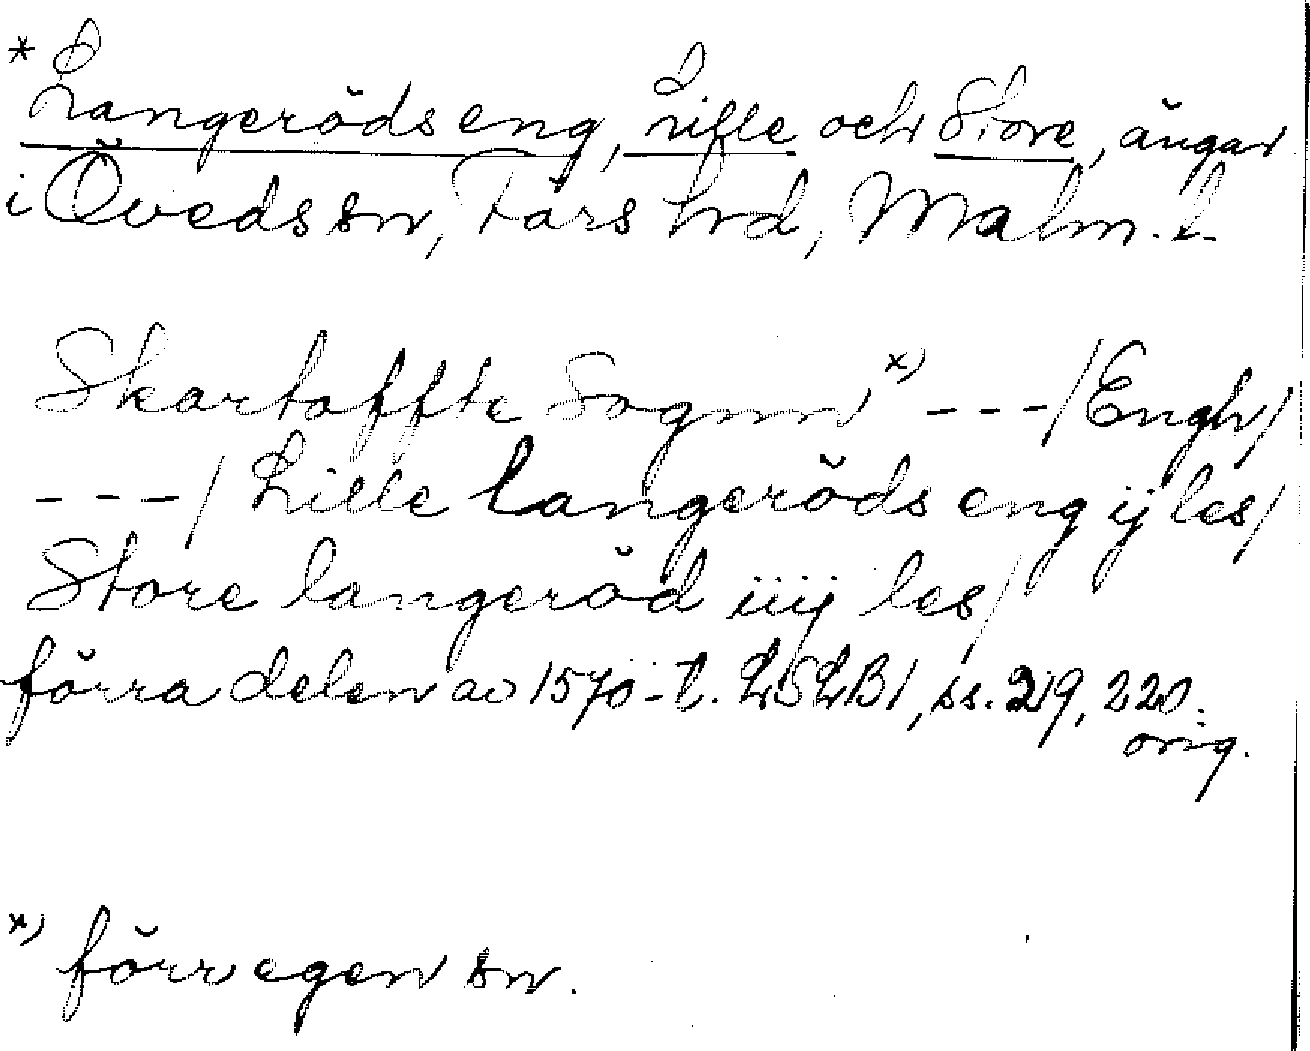 * Langeröds eng, Lille och Store, ängar
i Öveds sn, Färs hd, Malm. l.
Skartoffte Sognn x) --- / Engh /
--- / Lille langeröds eng ij les /
Store langeröd iiij les /
förra delen av 1570-t. LSLB1, ss. 219, 220.
orig.
x) förr egen sn.